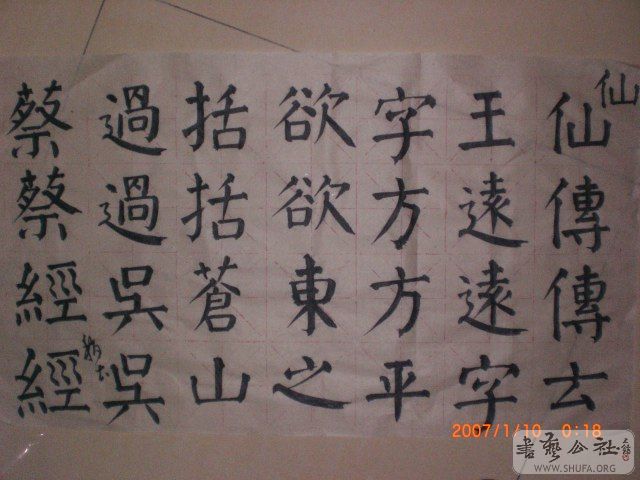 仙
仙傳傳云
王遠遠字
字方方平
欲欲東之
括括蒼山
過過吳吳
蔡蔡經經
2007/1/10 0:18
書藝公社
WWW.SHUFA.ORG